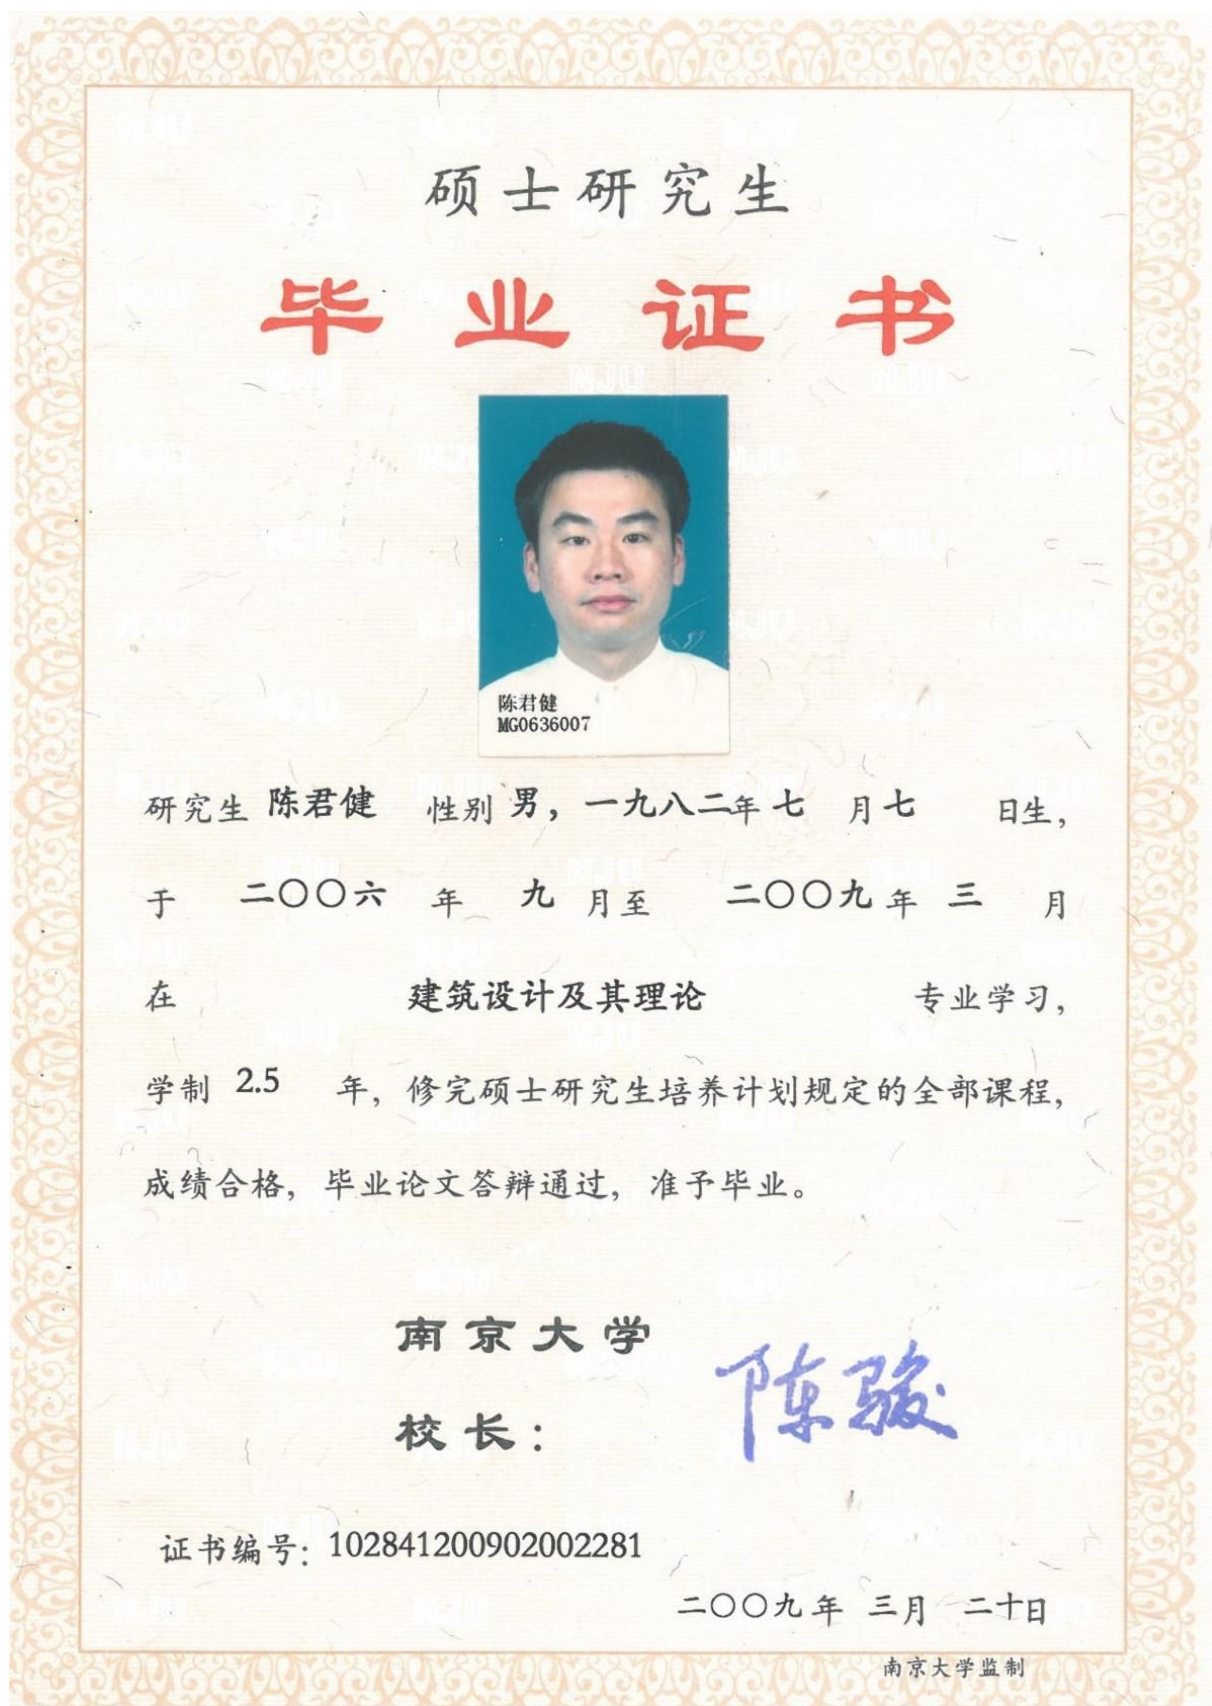 硕士研究生
毕业证书
陈君健
MG0636007
研究生 陈君健 性别 男，一九八二年 七 月 七 日生，
于 二〇〇六 年 九 月至 二〇〇九 年 三 月
在 建筑设计及其理论 专业学习，
学制 2.5 年，修完硕士研究生培养计划规定的全部课程，
成绩合格，毕业论文答辩通过，准予毕业。
南京大学
校长：陈骏
证书编号：102841200902002281
二〇〇九年 三月 二十日
南京大学监制